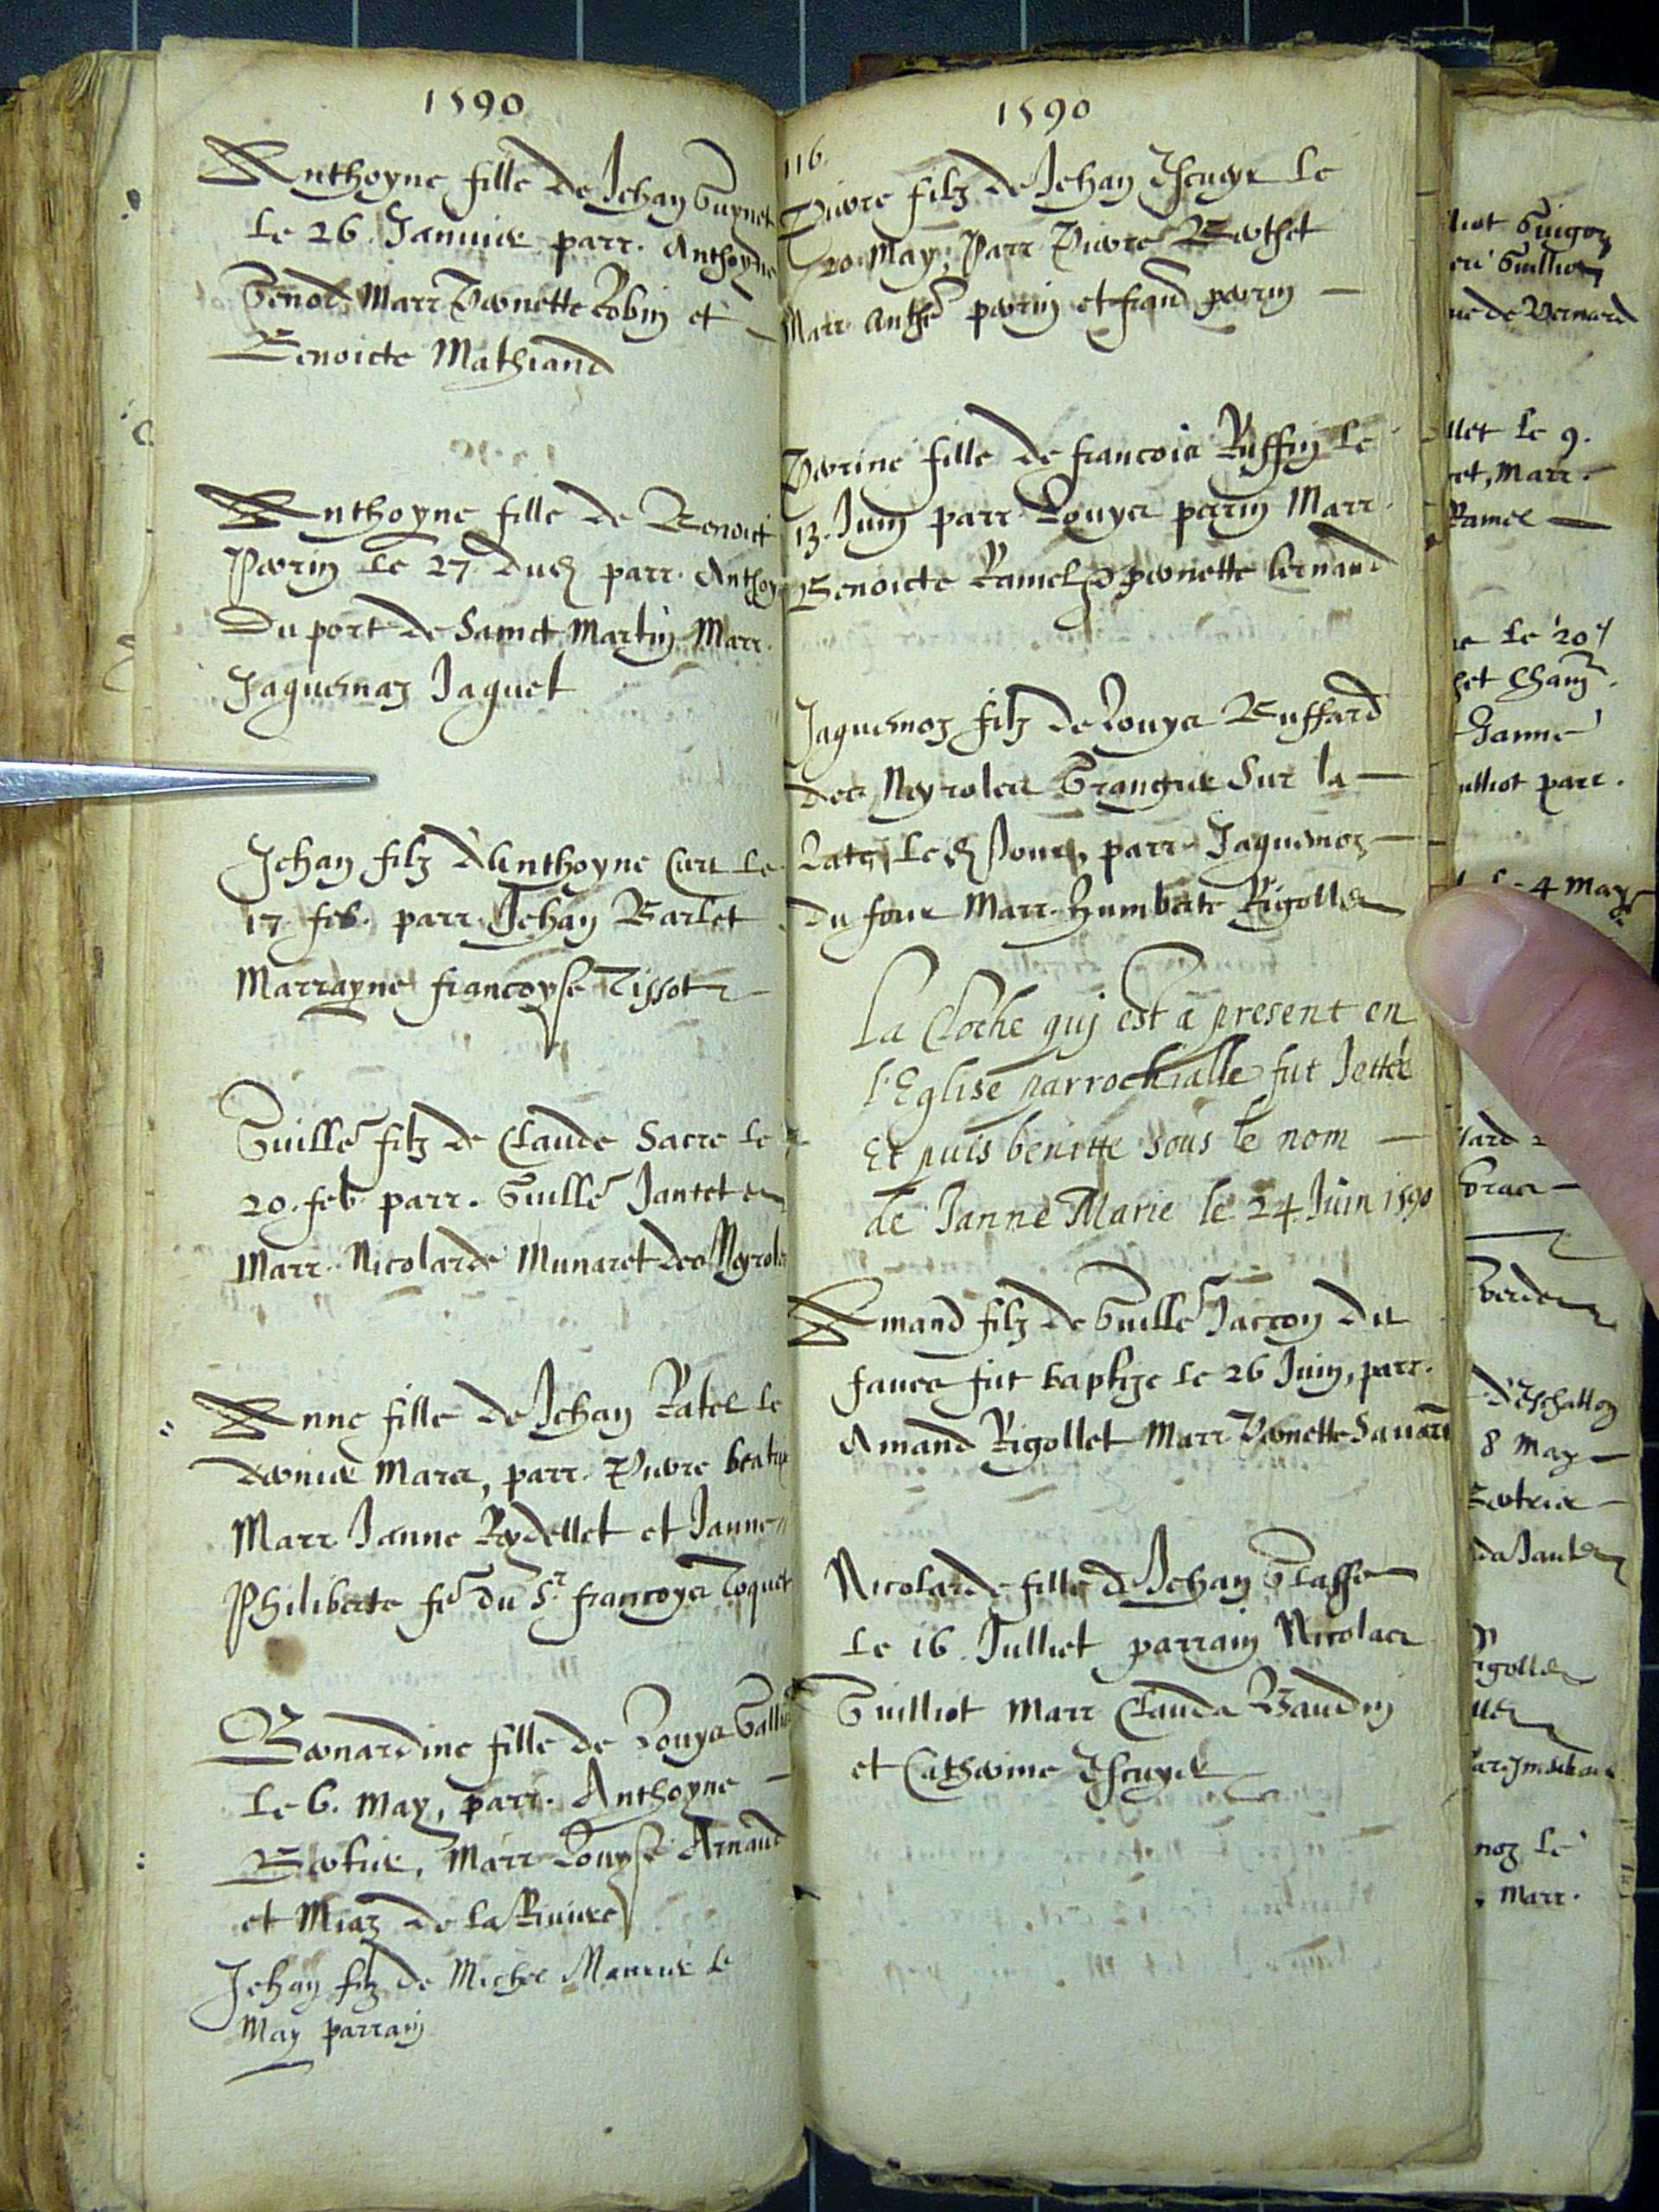 1590
Anthoyne fille de Jehan Guynet
le 26. Januier parr. Anthoyne
Genod Marr Pernette Robin et
Benoicte Mathiand
Anthoyne fille de Benoict
Perrin le 27 dud parr. Anthoy
Du port de Sainct Martin Marr.
Jaquemaz Jaquet
Jehan filz d'Anthoyne Curt le
17. feb. parr. Jehan Barlet
Marrayne francoyse Tissot
Guille filz de Claude Sacre le
20. feb parr. Guille Jantet et
Marr. Nicolarde Munaret des Neyroles
Anne fille de Jehan Ratel le
dernier Mars, parr. Pierre
Marr Janne Reydellet et Janne
Philiberte fe du Sr. francoys Toquet
Bernardine fille de Louys
Le 6. May, parr. Anthoyne
Marr Louyse Arnaud
et Miaz de la Riuiere
Jehan filz de Michel le
May parrain
1590
116.
Pierre filz de Jehan Escuyer le
20. May, Parr Pierre Berthet
Marr. Anthe perrin et frand perrin
Perrine fille de francois Ruffin le
13. Juin parr. Louys perrin Marr.
Benoicte Ramel & pernette bernard
Jaquemoz filz de Louys Buffard
des Neyroles Grangier Sur la
Latz, le d Jour, parr. Jaquemoz
du four Marr. Humberte Rigollet
La Cloche quj est a present en
l'Eglise parrochialle fut Jettée
Et puis benitte sous le nom
de Janne Marie le 24. Juin 1590
Amand filz de Guille Jarron dit
faure fut baptize le 26 Juin, parr.
Amand Rigollet Marr. Pernette Sauarin
Nicolarde fille de Jehan
Le 16. Julliet parrain Nicolas
Guilliot Marr Clauda Baudin
et Catherine Escuyer
Guigon
de Bernard
llet le 9.
et, Marr.
Ramel
le 20
Janne
parr.
le 4 May
8 May
noz le
, Marr.